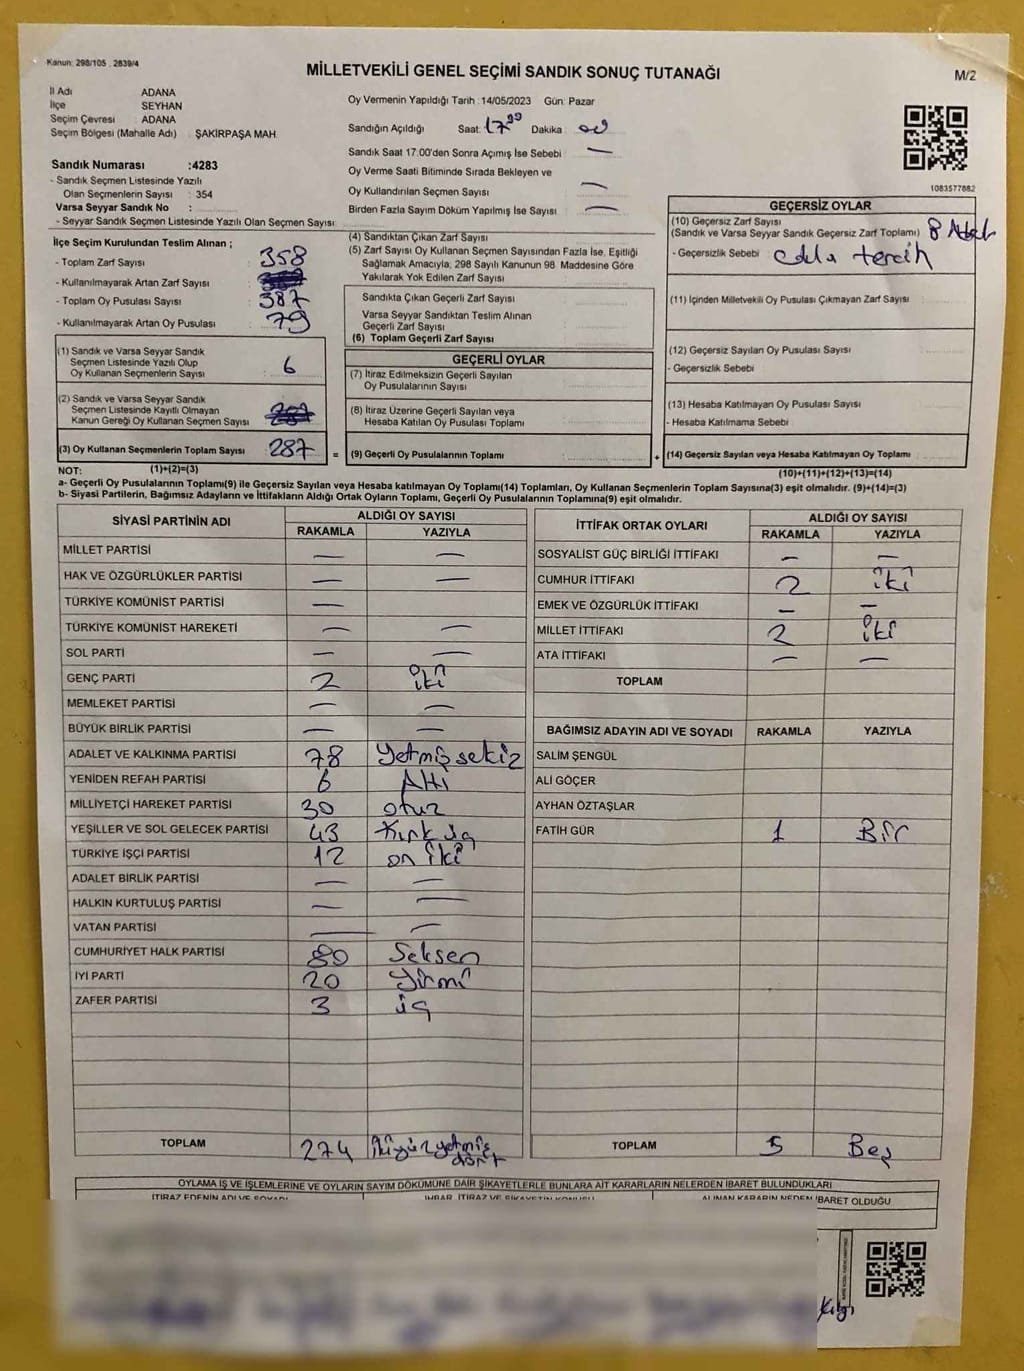 Kanun: 298/105 , 2839/4
MİLLETVEKİLİ GENEL SEÇİMİ SANDIK SONUÇ TUTANAĞI
M/2
İl Adı ADANA
İlçe SEYHAN
Seçim Çevresi ADANA
Seçim Bölgesi (Mahalle Adı) ŞAKİRPAŞA MAH.
Sandık Numarası :4283
- Sandık Seçmen Listesinde Yazılı
Olan Seçmenlerin Sayısı : 354
Varsa Seyyar Sandık No :
- Seyyar Sandık Seçmen Listesinde Yazılı Olan Seçmen Sayısı:
Oy Vermenin Yapıldığı Tarih :14/05/2023 Gün: Pazar
Sandığın Açıldığı Saat: 17 00 Dakika 00
Sandık Saat 17:00'den Sonra Açımış İse Sebebi —
Oy Verme Saati Bitiminde Sırada Bekleyen ve
Oy Kullandırılan Seçmen Sayısı —
Birden Fazla Sayım Döküm Yapılmış İse Sayısı —
1083577882
İlçe Seçim Kurulundan Teslim Alınan ;
- Toplam Zarf Sayısı 358
- Kullanılmayarak Artan Zarf Sayısı
- Toplam Oy Pusulası Sayısı 387
- Kullanılmayarak Artan Oy Pusulası 79
(1) Sandık ve Varsa Seyyar Sandık
Seçmen Listesinde Yazılı Olup
Oy Kullanan Seçmenlerin Sayısı : 6
(2) Sandık ve Varsa Seyyar Sandık
Seçmen Listesinde Kayıtlı Olmayan
Kanun Gereği Oy Kullanan Seçmen Sayısı
(3) Oy Kullanan Seçmenlerin Toplam Sayısı 287
(4) Sandıktan Çıkan Zarf Sayısı
(5) Zarf Sayısı Oy Kullanan Seçmen Sayısından Fazla İse, Eşitliği
Sağlamak Amacıyla, 298 Sayılı Kanunun 98. Maddesine Göre
Yakılarak Yok Edilen Zarf Sayısı
Sandıkta Çıkan Geçerli Zarf Sayısı
Varsa Seyyar Sandıktan Teslim Alınan
Geçerli Zarf Sayısı
(6) Toplam Geçerli Zarf Sayısı
GEÇERLİ OYLAR
(7) İtiraz Edilmeksizin Geçerli Sayılan
Oy Pusulalarının Sayısı
(8) İtiraz Üzerine Geçerli Sayılan veya
Hesaba Katılan Oy Pusulası Toplamı
= (9) Geçerli Oy Pusulalarının Toplamı
GEÇERSİZ OYLAR
(10) Geçersiz Zarf Sayısı
(Sandık ve Varsa Seyyar Sandık Geçersiz Zarf Toplamı) 8 Adet
- Geçersizlik Sebebi
(11) İçinden Milletvekili Oy Pusulası Çıkmayan Zarf Sayısı
(12) Geçersiz Sayılan Oy Pusulası Sayısı
- Geçersizlik Sebebi
(13) Hesaba Katılmayan Oy Pusulası Sayısı
- Hesaba Katılmama Sebebi
+ (14) Geçersiz Sayılan veya Hesaba Katılmayan Oy Toplamı
NOT: (1)+(2)=(3) (10)+(11)+(12)+(13)=(14)
a- Geçerli Oy Pusulalarının Toplamı(9) ile Geçersiz Sayılan veya Hesaba katılmayan Oy Toplamı(14) Toplamları, Oy Kullanan Seçmenlerin Toplam Sayısına(3) eşit olmalıdır. (9)+(14)=(3)
b- Siyasi Partilerin, Bağımsız Adayların ve İttifakların Aldığı Ortak Oyların Toplamı, Geçerli Oy Pusulalarının Toplamına(9) eşit olmalıdır.
SİYASİ PARTİNİN ADI ALDIĞI OY SAYISI
RAKAMLA YAZIYLA
MİLLET PARTİSİ — —
HAK VE ÖZGÜRLÜKLER PARTİSİ — —
TÜRKİYE KOMÜNİST PARTİSİ —
TÜRKİYE KOMÜNİST HAREKETİ — —
SOL PARTİ — —
GENÇ PARTİ 2 iki
MEMLEKET PARTİSİ — —
BÜYÜK BİRLİK PARTİSİ — —
ADALET VE KALKINMA PARTİSİ 78 Yetmiş sekiz
YENİDEN REFAH PARTİSİ 6 Altı
MİLLİYETÇİ HAREKET PARTİSİ 30 otuz
YEŞİLLER VE SOL GELECEK PARTİSİ 43 Kırk üç
TÜRKİYE İŞÇİ PARTİSİ 12 on iki
ADALET BİRLİK PARTİSİ — —
HALKIN KURTULUŞ PARTİSİ — —
VATAN PARTİSİ — —
CUMHURİYET HALK PARTİSİ 80 Seksen
İYİ PARTİ 20 Yirmi
ZAFER PARTİSİ 3 üç
TOPLAM 274 İkiyüz yetmiş dört
İTTİFAK ORTAK OYLARI ALDIĞI OY SAYISI
RAKAMLA YAZIYLA
SOSYALİST GÜÇ BİRLİĞİ İTTİFAKI — —
CUMHUR İTTİFAKI 2 iki
EMEK VE ÖZGÜRLÜK İTTİFAKI — —
MİLLET İTTİFAKI 2 iki
ATA İTTİFAKI — —
TOPLAM
BAĞIMSIZ ADAYIN ADI VE SOYADI RAKAMLA YAZIYLA
SALİM ŞENGÜL
ALİ GÖÇER
AYHAN ÖZTAŞLAR
FATİH GÜR 1 Bir
TOPLAM 5 Beş
OYLAMA İŞ VE İŞLEMLERİNE VE OYLARIN SAYIM DÖKÜMÜNE DAİR ŞİKAYETLERLE BUNLARA AİT KARARLARIN NELERDEN İBARET BULUNDUKLARI
İTİRAZ EDENİN ADI VE SOYADI İHBAR, İTİRAZ VE ŞİKAYETİN KONUSU ALINAN KARARIN NEDEN İBARET OLDUĞU